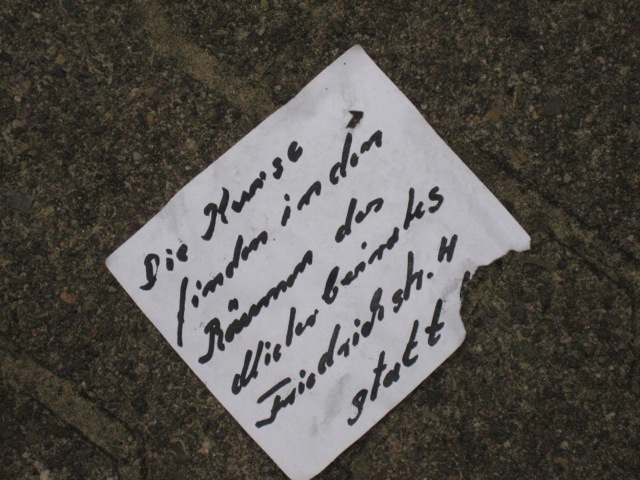 Die Kurse
finden in den
Räumen des
Mieterbeirates
Friedrichstr. 4
statt